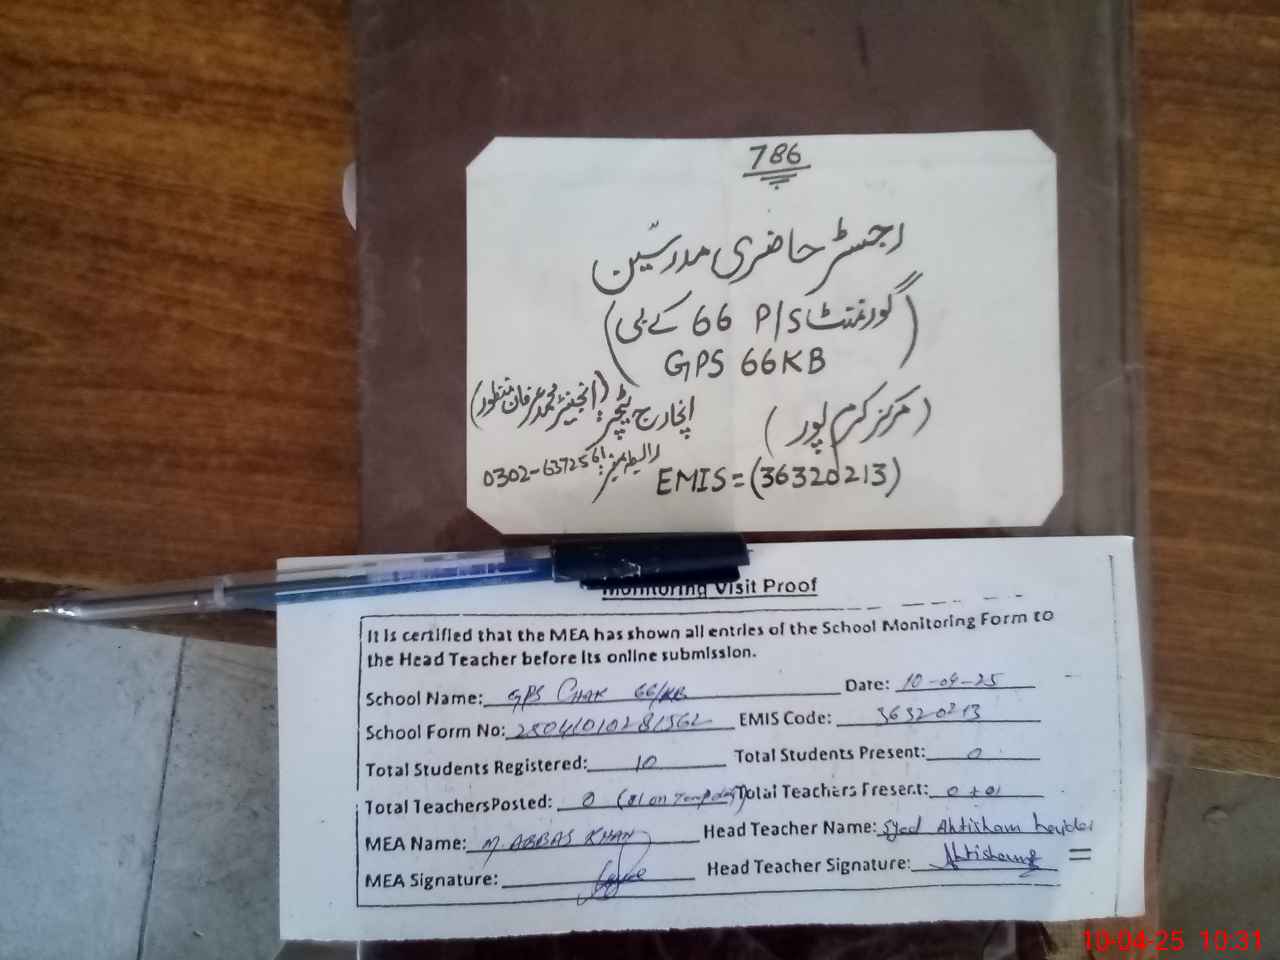 786
رجسٹر حاضری مدرسین
(گورنمنٹ P/S 66 کے بی)
GPS 66KB
(مرکز کرم پور)
انچارج ٹیچر: (انجینئر محمد عرفان منظور)
رابطہ نمبر: 0302-6372561
EMIS=(36320213)
Monitoring Visit Proof
It is certified that the MEA has shown all entries of the School Monitoring Form to
the Head Teacher before its online submission.
School Name: GPS Chak 66/KB Date: 10-04-25
School Form No: EMIS Code: 36320213
Total Students Registered: 10 Total Students Present: 0
Total TeachersPosted: 0 (01 on Temp duty) Total Teachers Present: 0+01
MEA Name: M. ABBAS KHAN Head Teacher Name: Syed Ahtisham haider
MEA Signature: Head Teacher Signature: Ahtisham
10-04-25 10:31